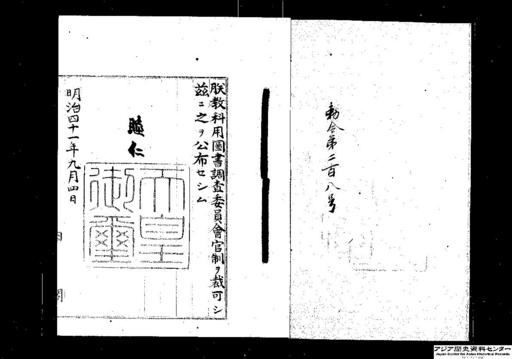 勅令第二百八号
朕教科用圖書調査委員會官制ヲ裁可シ
茲ニ之ヲ公布セシム
睦仁
天皇
御璽
明治四十一年九月四日
アジア歴史資料センター
Japan Center for Asian Historical Records